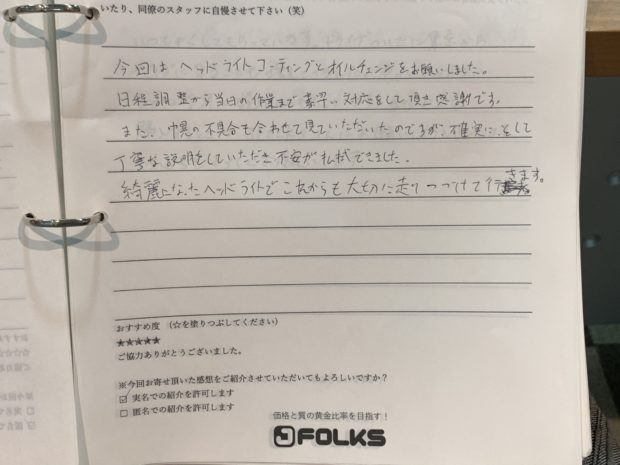 いたり、同僚のスタッフに自慢させて下さい（笑）
今回は ヘッドライトコーティングとオイルチェンジをお願いしました。
日程調整から当日の作業まで素早い対応をして頂き感謝です。
また、幌の不具合も合わせて見ていただいたのですが、確実に、そして
丁寧な説明をしていただき不安が払拭できました。
綺麗になったヘッドライトでこれからも大切に走りつづけて行きます。
おすすめ度　（☆を塗りつぶしてください）
★★★★★
ご協力ありがとうございました。
※今回お寄せ頂いた感想をご紹介させていただいてもよろしいですか？
☑ 実名での紹介を許可します
□ 匿名での紹介を許可します
価格と質の黄金比率を目指す！
FOLKS